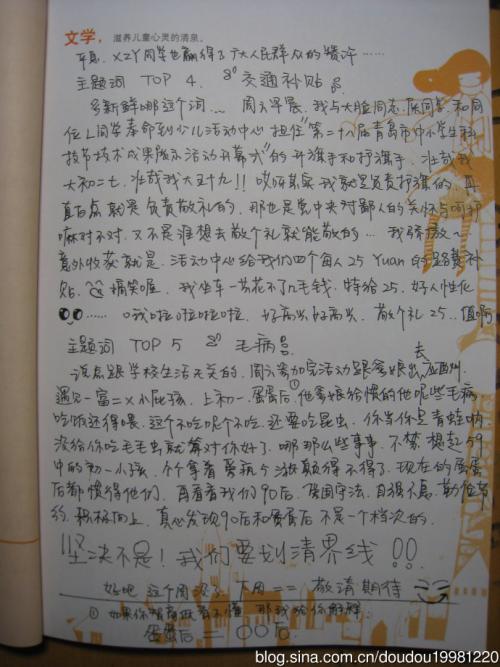 文学，滋养儿童心灵的清泉。
平息，XZY同学也赢得了广大人民群众的赞许……
主题词 TOP 4. 交通补贴
多新鲜哪这个词… 周六早晨，我与大脸同志、陈同志和同
位L同学奉命到少儿活动中心担任"第二十八届青岛市中小学生科
技节技术成果展示活动开幕式"的升旗手和护旗手，准哉我
大初二七，准哉我大五十九!! 哎呀其实我就是负责护旗的，再
直白点就是负责敬礼的，那也是党中央对鄙人的关怀与呵护
嘛对不对，又不是谁想去敬个礼就能敬的… 我骄傲~
意外收获就是，活动中心给我们四个每人25 Yuan的路费补
贴，搞笑喔，我坐车一共花不了几毛钱，特给25，好人性化
……啦啦啦啦啦，好高兴好高兴，敬个礼25，值啊
主题词 TOP 5 毛病
说点跟学校生活无关的，周六参加完活动跟爹娘出去
遇见一富二×小屁孩，上初一，蛋蛋后①，他爹娘给惯的他呢些毛病
吃饭还得喂，这个不吃呢个不吃，还要吃昆虫，你当你是青蛙呐
没给你吃毛毛虫就算对你好了，哪那么些事事，不禁想起59
中的初一小孩，个个拿着得不得了，现在的蛋蛋
后都惯得他们，再看看我们90后，强国守法，自强不息，勤俭节
约，积极向上，真心发现90后和蛋蛋后不是一个档次的，
坚决不是！我们要划清界线!!
好吧 这个周没了 下周== 敬请期待
① 如果你看不懂 那我给你解释：
蛋蛋后 = 00后
blog.sina.com.cn/doudou19981220